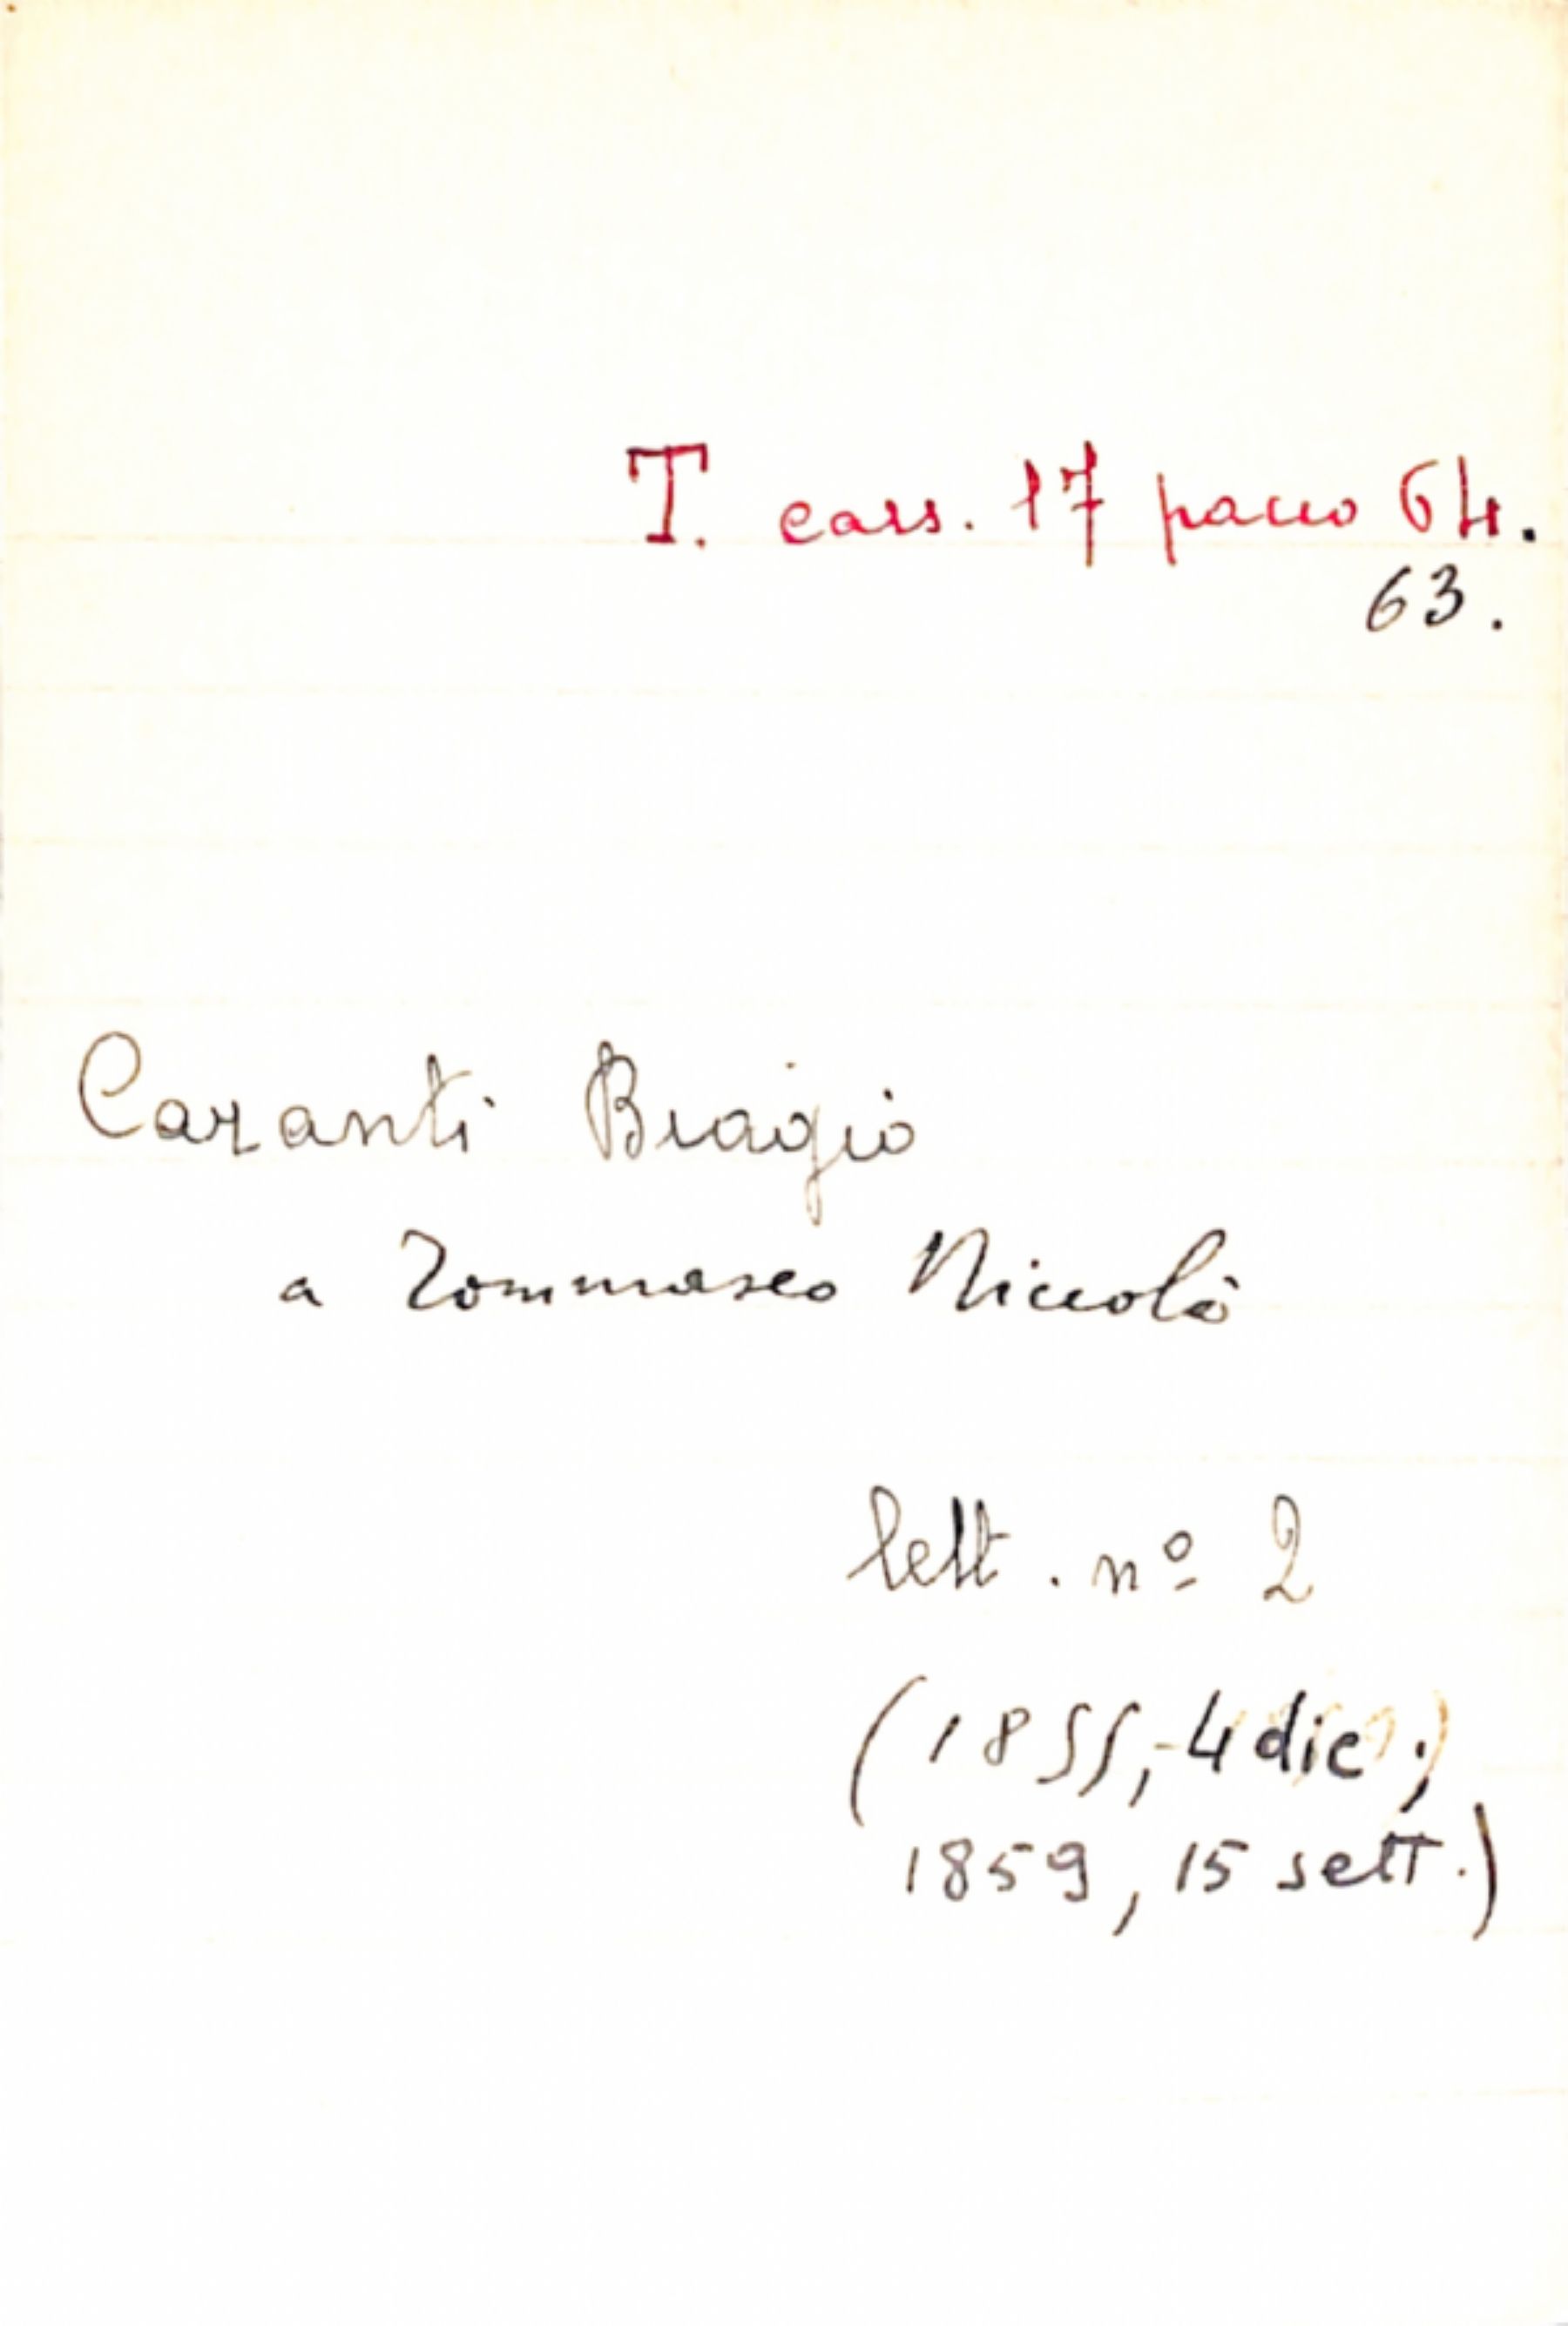 T. cass. 17 pacco 64.
63.
Caranti Biagio
a Tommaseo Niccolò
lett. nº 2
(1855, 4 dic;
1859, 15 sett.)